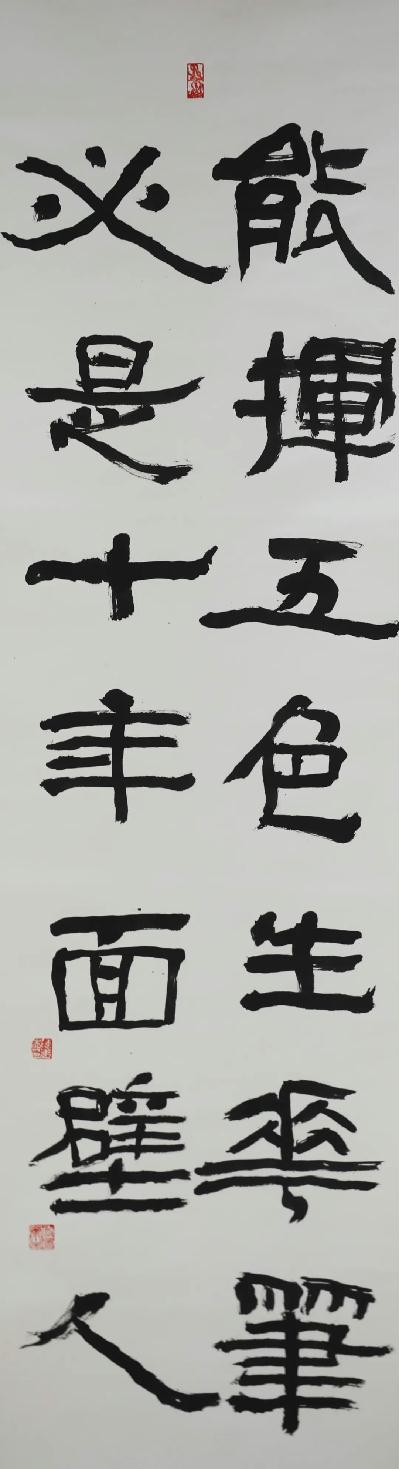 能揮五色生花筆
必是十年面壁人